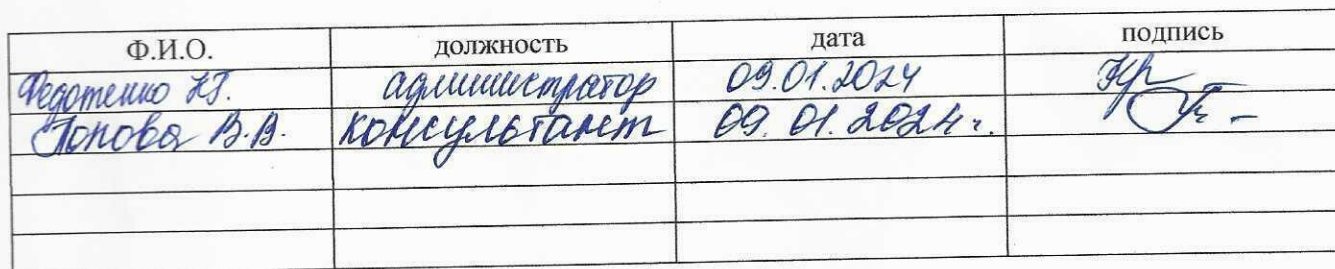 Ф.И.О. должность дата подпись
Федотенко К.Г. администратор 09.01.2024
Попова В.В. консультант 09.01.2024 г.